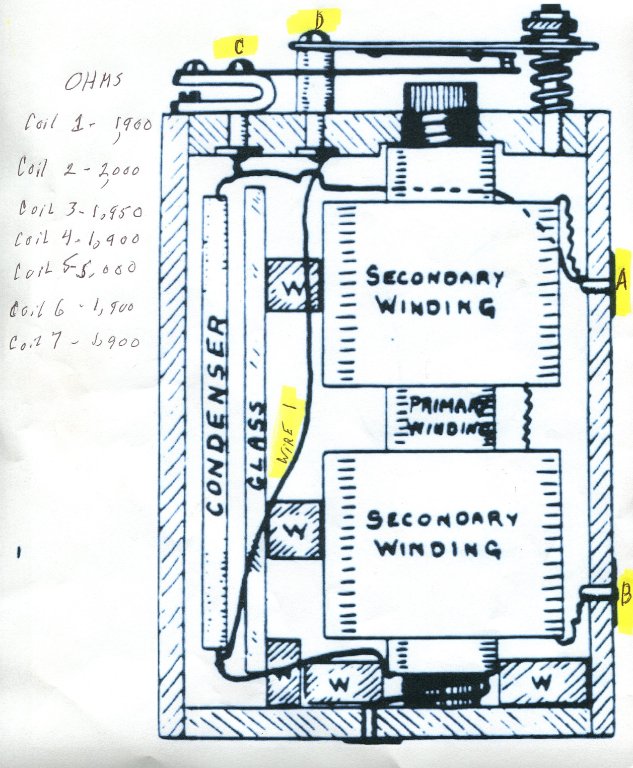 C
D
OHMS
Coil 1- 1,900
Coil 2 - 2,000
Coil 3 - 1,950
Coil 4 - 1,900
Coil 5 - 5,000
Coil 6 -
Coil 7 - 1,900
A
W
SECONDARY
WINDING
CONDENSER
GLASS
WIRE 1
PRIMARY
WINDING
W
SECONDARY
WINDING
B
W
W
W